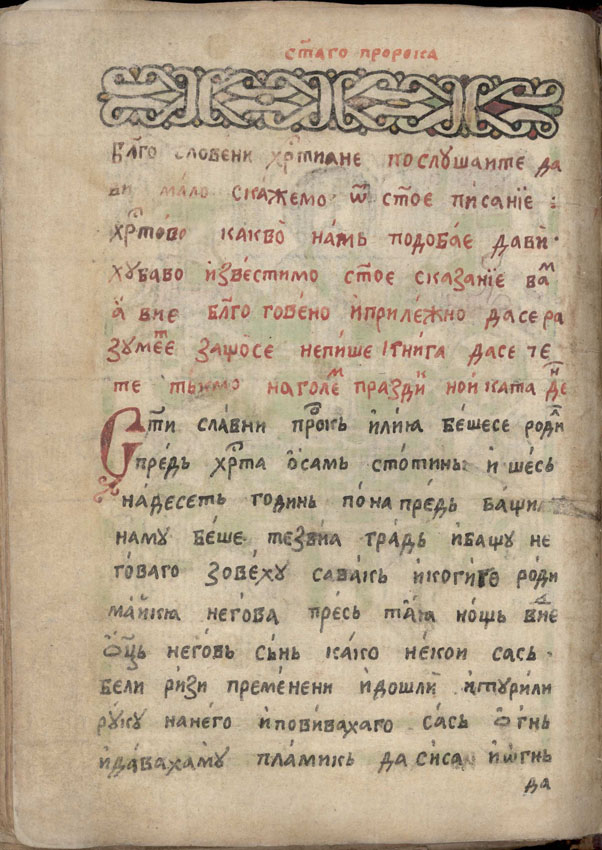 ст҃аго пророка
бл҃го словени хр҃тиане послушаите да
ви мало скажемо ѿ ст҃ое писанїе :
хр҃тово какво̀ намь подобае дави ·
хубаво извѐстимо ст҃ое сказанїе ваᷟ
а̀ вие бл҃го говено иприлѐжно дасе ра
зумеⷮе защосе непише книга дасе че
те тькмо наголеᷟ праздиⷦ нои ката деⷩ
Ст҃и славни прⷪ҇кь илїю бѐшесе родиⷧ
предь хрⷭ҇та осамь стотинь и шесь
на́десеть годинь по напредь баши
наму бѐше тезвиа градь ибащу не
говаго зовѐху савакь икогиго роди
маикю негова пресь таѧ нощь виⷣе
ѻц҃ь неговь сьнь како некои сась ·
бели ризи премѐнени идошли итурили
руку нанего иповивахаго сась ѻгнь
идавахаму пламикь да сиса иѡгнь
да